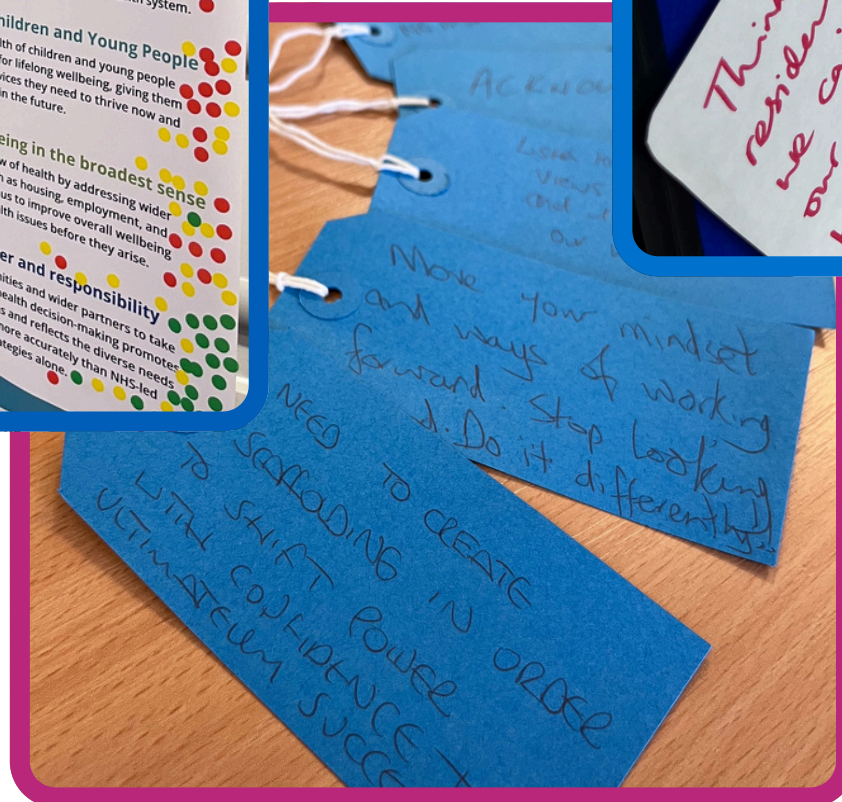 system.
hildren and Young People
lth of children and young people
for lifelong wellbeing, giving them
vices they need to thrive now and
in the future.
eing in the broadest sense
w of health by addressing wider
h as housing, employment, and
us to improve overall wellbeing
lth issues before they arise.
er and responsibility
nities and wider partners to take
health decision-making promotes
s and reflects the diverse needs
more accurately than NHS-led
ategies alone.
Thin
residen
we ca
our
ACKNOW
Listen to
views
and
our
Move your mindset
and ways of working
forward. Stop looking
Do it differently!
NEED TO CREATE
SCAFFOLDING IN ORDER
TO SHIFT POWER
WITH CONFIDENCE +
ULTIMATELY SUCCE